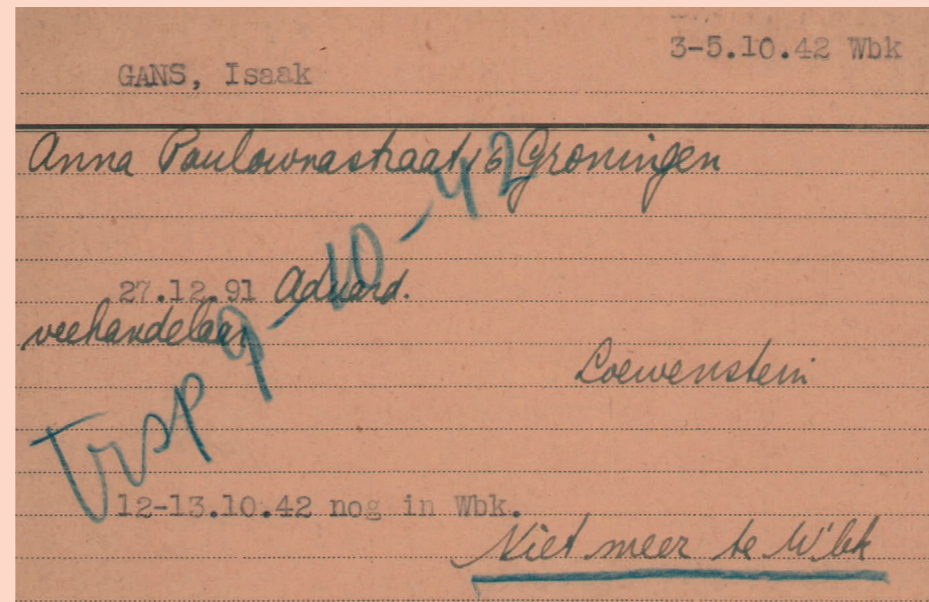 3-5.10.42 Wbk
GANS, Isaak
Anna Paulownastraat 6 Groningen
27.12.91 Aduard.
veehandelaar
Loewenstein
Trsp 9-10-42
12-13.10.42 nog in Wbk.
Niet meer te W'bk